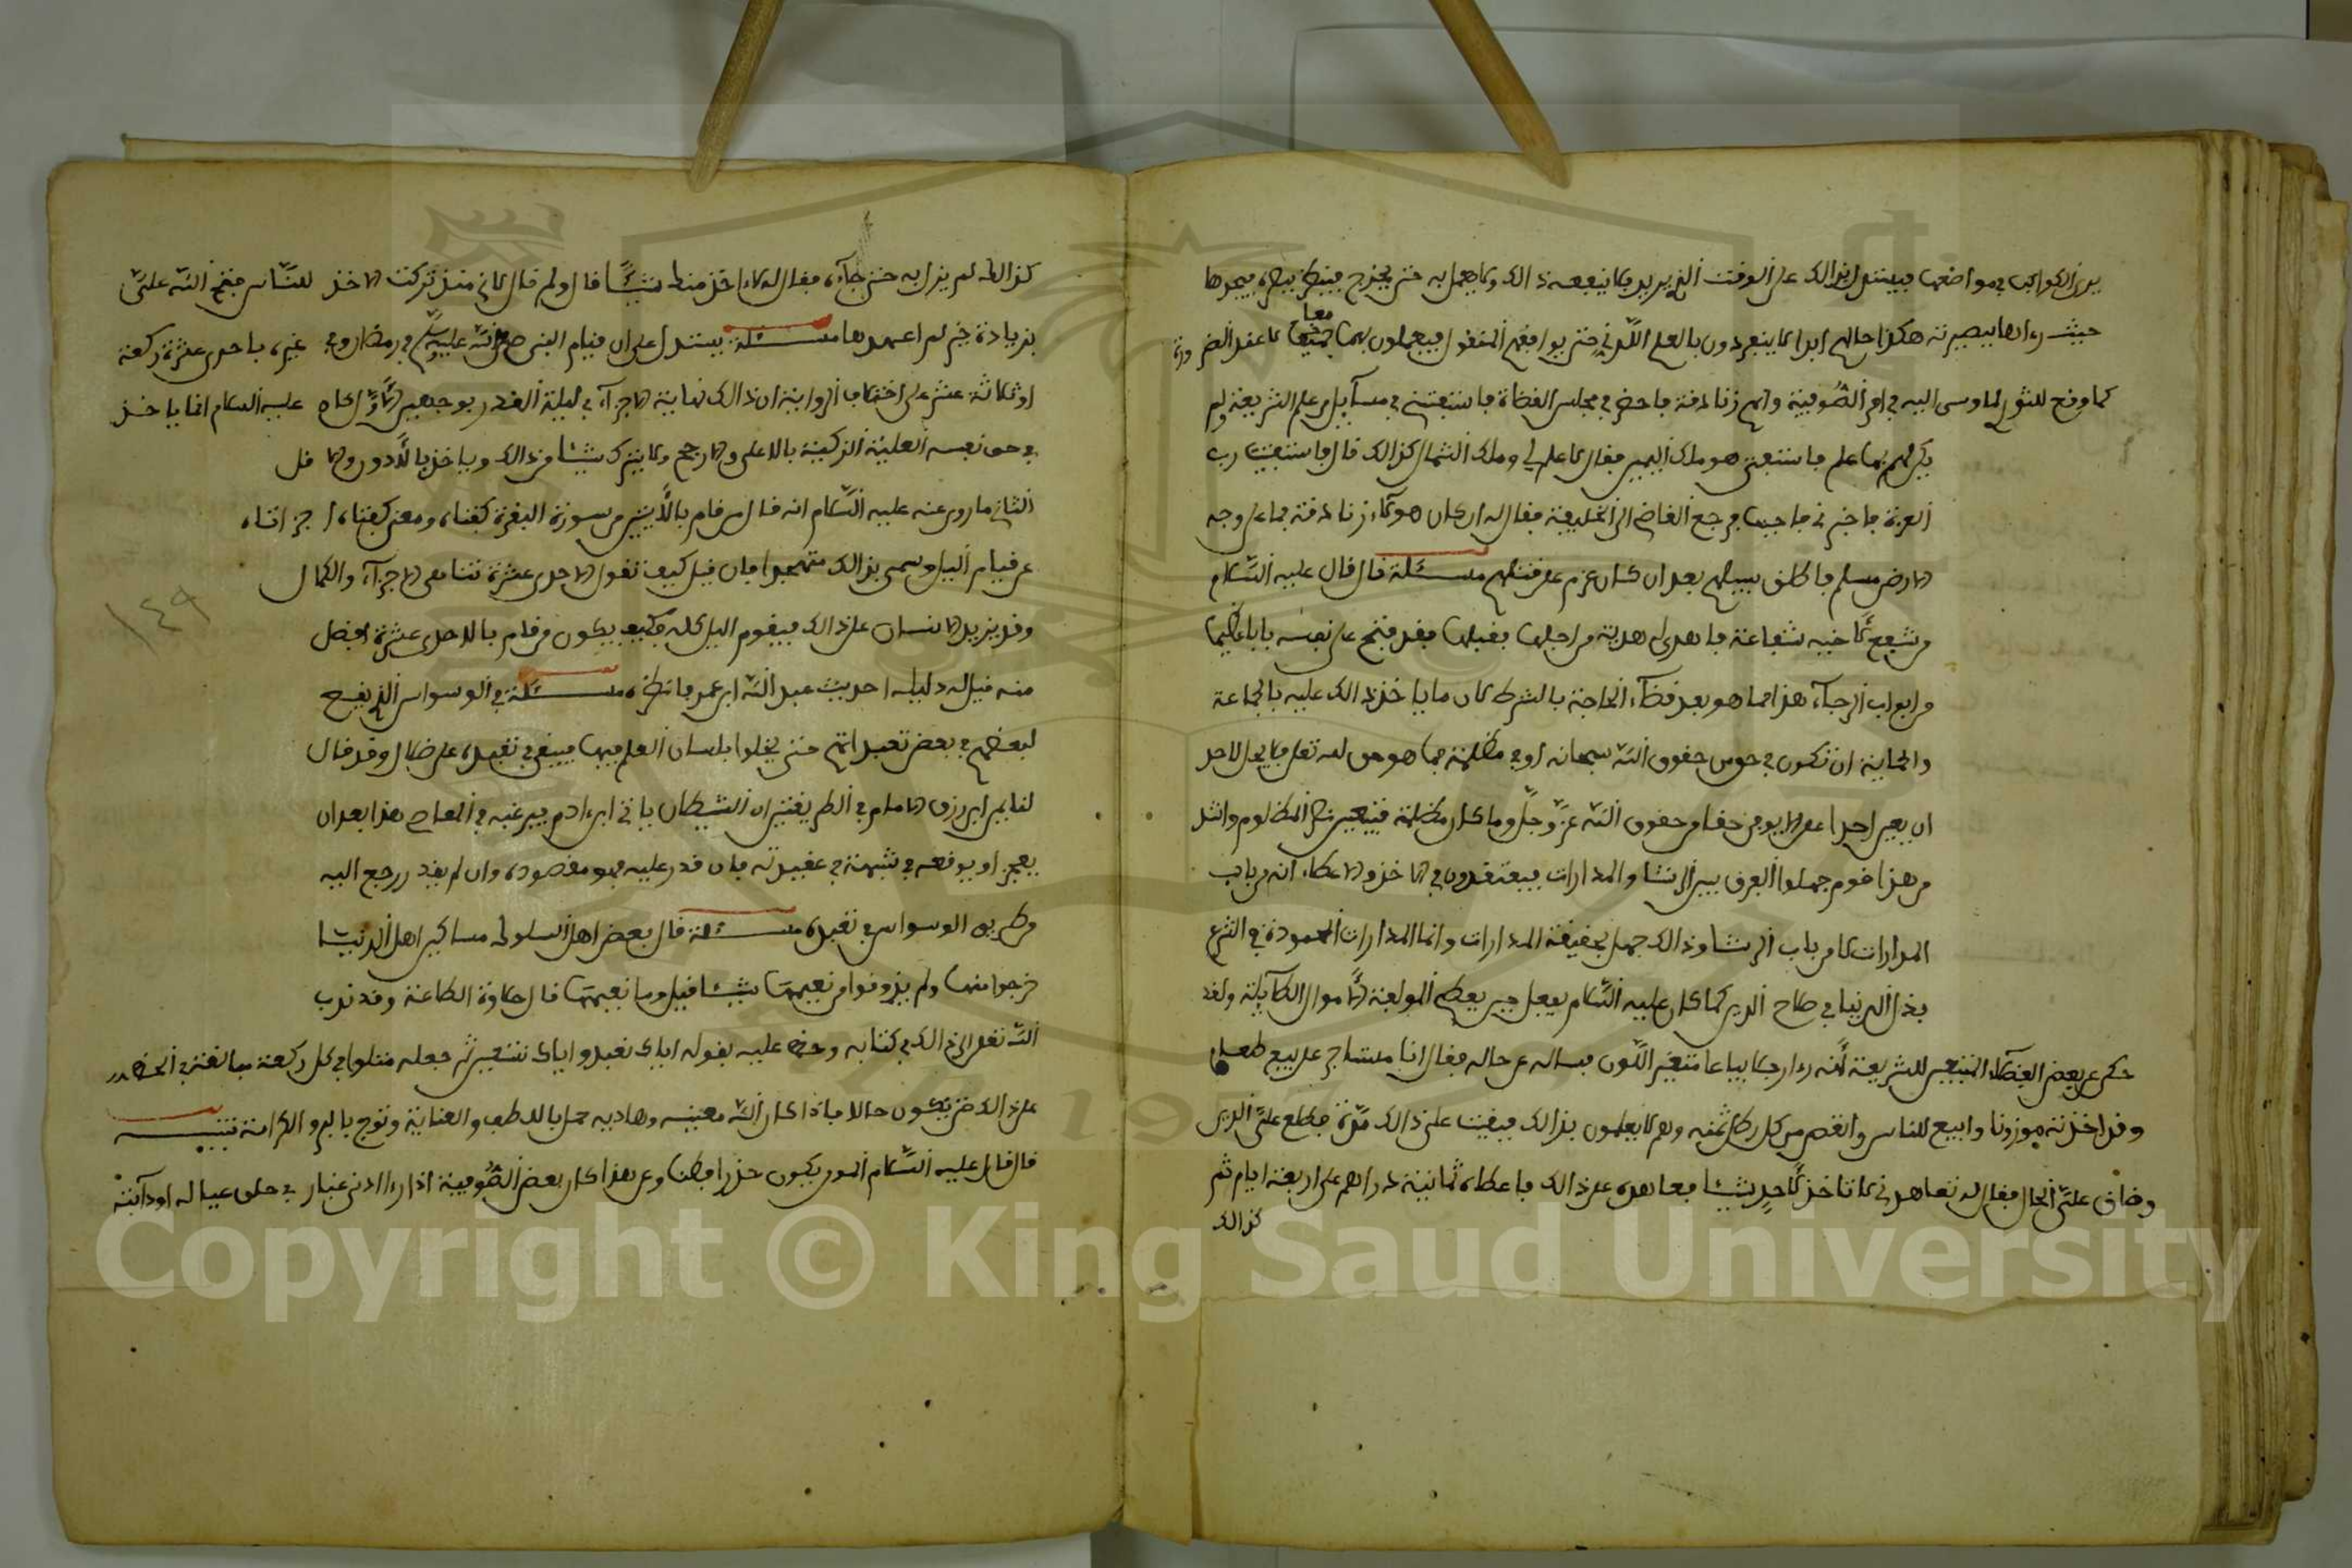 يرى الكواكب في مواضعها فيستدل بذالك على الوقت الذي يريد لا ينفعه ذالك ولا يعمل به حتى يخرج فينظر ببصره فيجدها
حيث رءاها ببصيرته هكذا حالهم ابدا لا ينفردون بالعلم اللدني حتى يوافقهم المنقول فيعملون بهما جميعا معا
كما وقع للثوري لما وسى اليه في امر الصوفية وانهم زنادقة فاحضر في مجلس القضاة فاستفتي في مسآيل من علم الشريعة ولم
يكن لهم بها علم فاستفتى هو ملك اليمين فقال لا علم لي وملك الشمال كذالك قال فاستفتيت رب
العزة فاخبرني فاجبت فرجع القاضي الى الخليفة فقال له ان كان هولاء زنادقة فما على وجه
الارض مسلم فاطلق سبيلهم بعد ان كان عزم على قتلهم مسئلة قال قال عليه السلام
من شفع لاخيه شفاعة فاهدى له هدية من اجلها فقبلها فقد فتح على نفسه بابا عظيما
من ابواب الرباء هذا انما هو بعد قضآء الحاجة بالشرط لان ما ياخذ ذالك عليه بالجماعة
والثانية ان تكون في حق من حقوق الله سبحانه او في مظلمة فما هو حق لله تعلى فلا يحل لاحد
ان يعين احدا على ان لا يوفي حقا من حقوق الله عز وجل وما كان مظلمة فتعين نصر المظلوم وانشد
من هذا قوم جهلوا الفرق بين الرشا والمدارات فيعتقدون في الاخذ والاعطاء انه من باب
المدارات لا من باب الرشا وذالك جهل بحقيقة المدارات وانما المدارات المحمودة في الشرع
بذل الدنيا في صلاح الدين كما كان عليه السلام يفعل حين يعطي المولفة الاموال الطآيلة ولقد
حكي عن بعض الفضلآء المتبعين للشريعة انه رءا رجلا بياعا متغير اللون فساله عن حاله فقال انا مستاجر على بيع طعام
وقد اخذته موزونا وابيع للناس وانقص من كل رطل ثمنه وهم لا يعلمون بذالك فبقيت على ذالك مدة فطلع علي الدين
وضاق علي الحال فقال له تعاهدني لا تاخذ لاحد شيئا فعاهده على ذالك فاعطاه ثمانية دراهم على اربعة ايام ثم
كذالك
كذالك لم يزل به حتى جآء فقال له لا اخذ منك شيئا قال ولم قال لاني منذ تركت الاخذ للناس فتح الله علي
بزيادة خير لم اعهدها مسئلة يستدل على ان قيام النبي صلى الله عليه وسلم في رمضان وفي غيره باحدى عشرة ركعة
او ثلاثة عشر على اختلاف الرواية ان ذالك نهاية الاجزآء في ليلة القدر بوجهين الاول انه عليه السلام انما ياخذ
في حق نفسه العلية الزكية بالاعلى والارجح ولا يترك شيئا من ذالك وياخذ بالادون والاقل
الثاني ما روي عنه عليه السلام انه قال من قام بالايتين من سورة البقرة كفتاه ومعنى كفتاه اجزاتاه
عن قيام اليل وسمي بذالك متهجدا فان قيل كيف نقول الاحدى عشرة تناهى الاجزآء والكمال
وقد يزيد الانسان على ذالك فيقوم اليل كله فكيف يكون من قام بالاحدى عشرة افضل
منه قيل له دليله احديث عبد الله ابن عمر فانظره مسئلة في الوسواس الذي يقع
لبعضهم في بعض تعبداتهم حتى يخلوا بلسان العلم فيها فيبقى في تعبده على ضلال وقد قال
لقا بين ابن رزق الامام في الطريقتين ان الشيطان ياتي ابن ءادم فيرغبه في المعاصي هذا بعد ان
يعجز او يوقعه في شبهة في عقيدته فان قدر عليه فهو مقصوده وان لم يقدر رجع اليه
من طريق الوسواس في تعبده مسئلة قال بعض اهل السلوك مساكين اهل الدنيا
خرجوا منها ولم يذوقوا من نعيمها شيئا قيل وما نعيمها قال حلاوة الطاعة وقد ندب
الله تعلى الى ذالك في كتابه وحض عليه بقوله اياك نعبد واياك نستعين ثم جعله متلوا في كل ركعة مبالغة في الحض
على ذالك حتى يكون حالا فاذا كان الله معينه وهاديه حمل باللطف والعناية وتوج بالبر والكرامة تنبيه
قال قال عليه السلام المومن يكون حذرا فطنا وعن هذا كان بعض الصوفية اذا رءا ادنى غبار في خلق عياله او دآبته
١٤٩
Copyright © King Saud University
1957